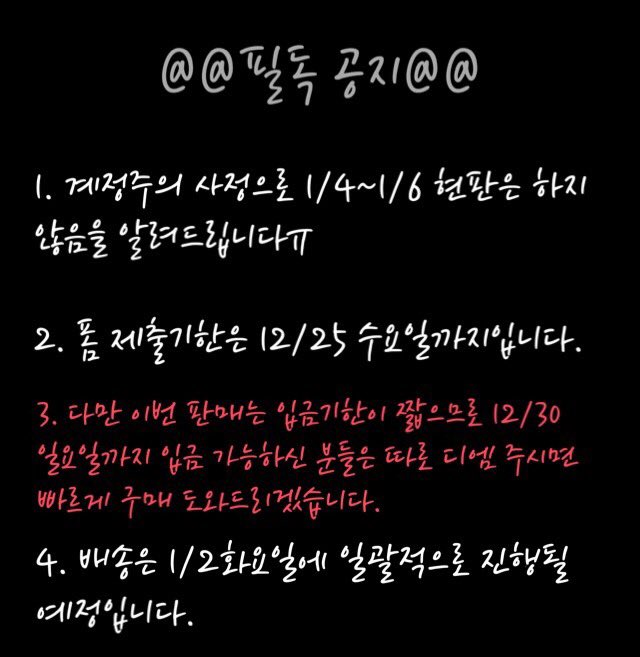 @@필독 공지@@
1. 계정주의 사정으로 1/4~1/6 현판은 하지
않음을 알려드립니다ㅠ
2. 폼 제출기한은 12/25 수요일까지입니다.
3. 다만 이번 판매는 입금기한이 짧으므로 12/30
일요일까지 입금 가능하신 분들은 따로 디엠 주시면
빠르게 구매 도와드리겠습니다.
4. 배송은 1/2화요일에 일괄적으로 진행될
예정입니다.